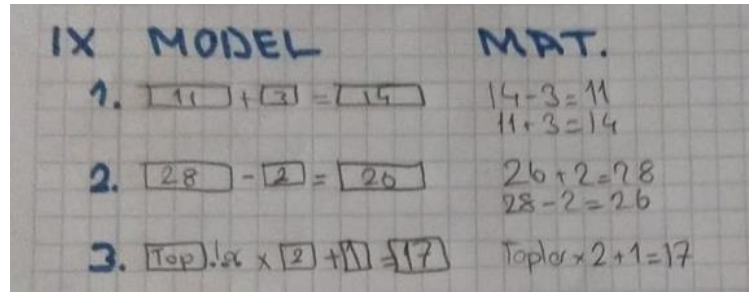 IX MODEL MAT.
1. 11 + 3 = 14 14-3=11
11+3=14
2. 28 - 2 = 26 26+2=28
28-2=26
3. Top x 2 + 1 = 17 Toplar x 2+1=17